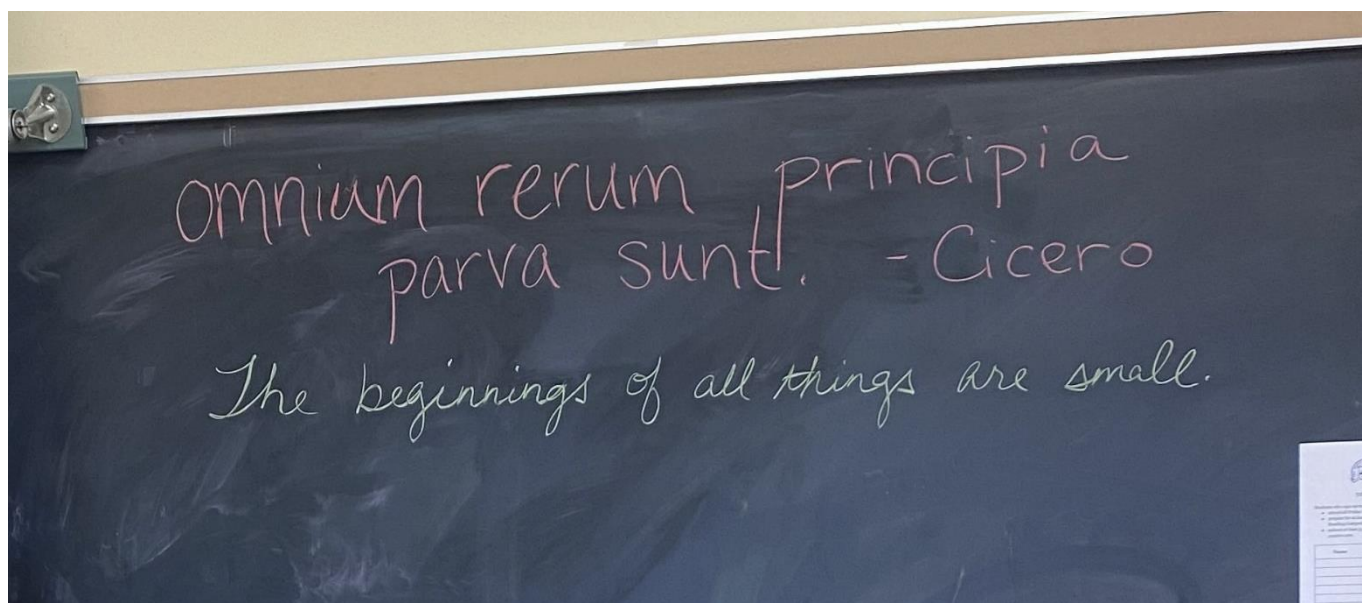 omnium rerum principia
parva sunt. - Cicero
The beginnings of all things are small.